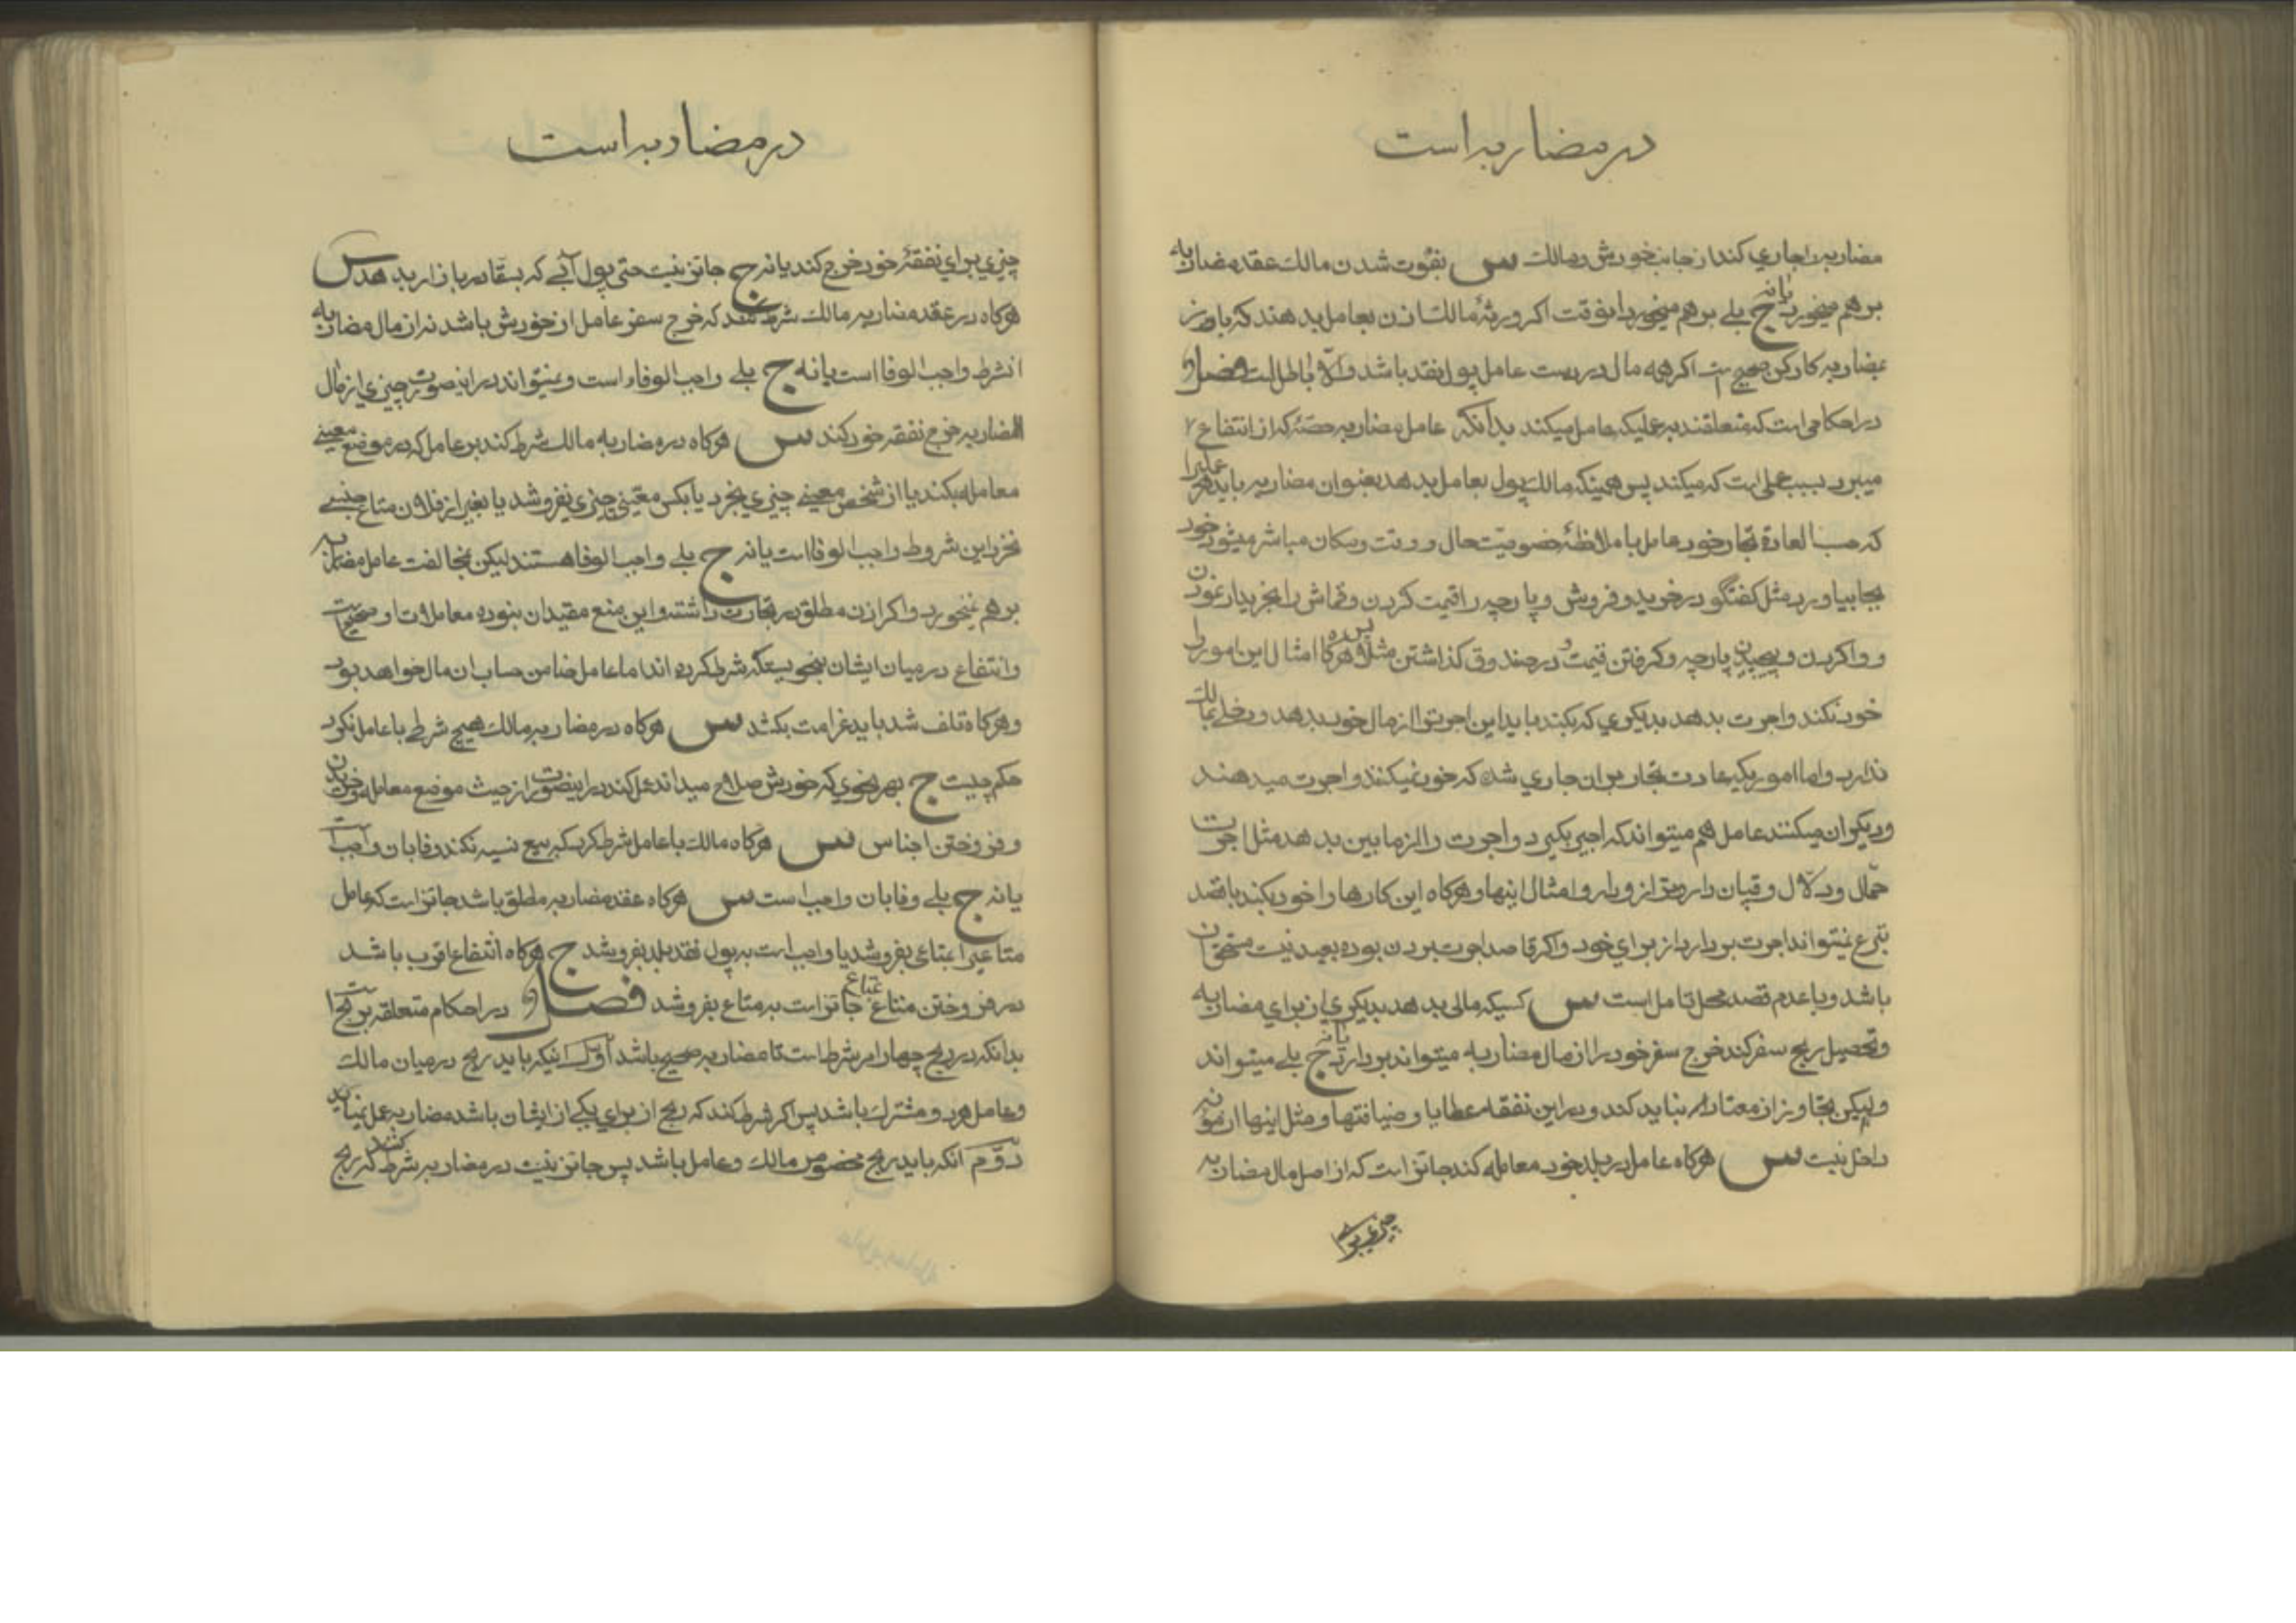 در مضاربه است
مضاربه را جاري كند از جانب خودش و مالك س بفوت شدن مالك عقد مضاربه
برهم ميخورد يا نه ج بلي برهم ميخورد اكر ورثهٔ مالك اذن بعامل بدهند كه باز
بمضاربه كار كن صحيح است اكر همه مال در دست عامل پول نقد باشد و الّا باطل است فصل
در احكامي است كه متعلقند بعمليكه عامل ميكند بدانكه عامل مضاربه حصّهٔ كه از انتفاع
ميبرد بسبب عملي است كه ميكند پس همينكه مالك پول بعامل بدهد بعنوان مضاربه بايد هر عملي را
كه حسب العادة تجار خود عامل با ملاحظهٔ خصوصيت حال و وقت و مكان مباشر ميشود خود
بجا بياورد مثل كفتكو در خريد و فروش و پارچه را قيمت كردن و قماش را بخريدار نمودن
و واكردن و پيچيدن پارچه و كرفتن قيمت و در صندوق كذاشتن مثلا پس هركاه امثال اين امور را
خود نكند و اجرت بدهد بديكري كه بكند بايد اين اجرت را از مال خود بدهد و دخلي بمالك
ندارد و اما اموريكه عادت تجار بر ان جاري شده كه خود نميكنند و اجرت ميدهند
و ديكران ميكنند عامل هم ميتواند كه اجير بكيرد و اجرت را از مابين بدهد مثل اجرت
حمّال و دلّال و قپان دار و ترازودار و امثال اينها و هركاه اين كارها را خود بكند با قصد
تبرع نميتواند اجرت بردارد از براي خود و اكر قاصد اجرت بردن بوده بعيد نيست مستحق ان
باشد و با عدم قصد محل تامل است س كسيكه مالي بدهد بديكري از براي مضاربه
و تحصيل ربح سفر كند خرج سفر خود را از مال مضاربه ميتواند بردارد يا نه ج بلي ميتواند
وليكن تجاوز از معتاد نبايد كند و در اين نفقه عطايا و ضيافتها و مثل اينها از مؤنه
داخل نيست س هركاه عامل در بلد خود معامله كند جائز است كه از اصل مال مضاربه
چيزي براي
در مضاربه است
چيزي براي نفقهٔ خود خرج كند يا نه ج جائز نيست حتي پول آبي كه بسقا در بازار بدهد س
هركاه در عقد مضاربه مالك شرط كند كه خرج سفر عامل از خودش باشد نه از مال مضاربه
انشرط واجب الوفا است يا نه ج بلي واجب الوفاء است و نميتواند در اين صورت چيزي از مال
المضاربه خرج نفقه خود كند س هركاه در مضاربه مالك شرط كند بر عامل كه در موضع معيني
معامله بكند يا از شخص معيني چيزي بخرد يا بكس معيّني چيزي نفروشد يا بغير از فلان متاع جنسي
نخرد اين شروط واجب الوفا است يا نه ج بلي واجب الوفا هستند ليكن بمخالفت عامل مضاربه
برهم نميخورد و اكر اذن مطلق در تجارت داشته و اين منع مقيد ان نبوده معاملات او صحيح است
و انتفاع در ميان ايشان بنحويستكه شرط كرده اند اما عامل ضامن حساب ان مال خواهد بود
و هركاه تلف شد بايد غرامت بكشد س هركاه در مضاربه مالك هيچ شرطي با عامل نكرد
حكم چيست ج بهر نحوي كه خودش صلاح ميداند عمل كند در اينصورت از حيث موضع معامله و خريدن
و فروختن اجناس س هركاه مالك با عامل شرط كرد كه بيع نسيه نكند وفا بان واجب است
يا نه ج بلي وفا بان واجب است س هركاه عقد مضاربه مطلق باشد جائز است كه عامل
متاعي را بمتاعي بفروشد يا واجب است به پول نقد بلد بفروشد ج هركاه انتفاع اقرب باشد
در فروختن متاع بمتاع جائز است به متاع بفروشد فصل در احكام متعلقه بربح است
بدانكه در ربح چهار امر شرط است تا مضاربه صحيح باشد اول اينكه بايد ربح در ميان مالك
و عامل هر دو مشترك باشد پس اكر شرط كند كه ربح از براي يكي از ايشان باشد مضاربه بعمل نميايد
دوّم انكه بايد ربح مخصوص مالك و عامل باشد پس جائز نيست در مضاربه شرط كنند كه ربح